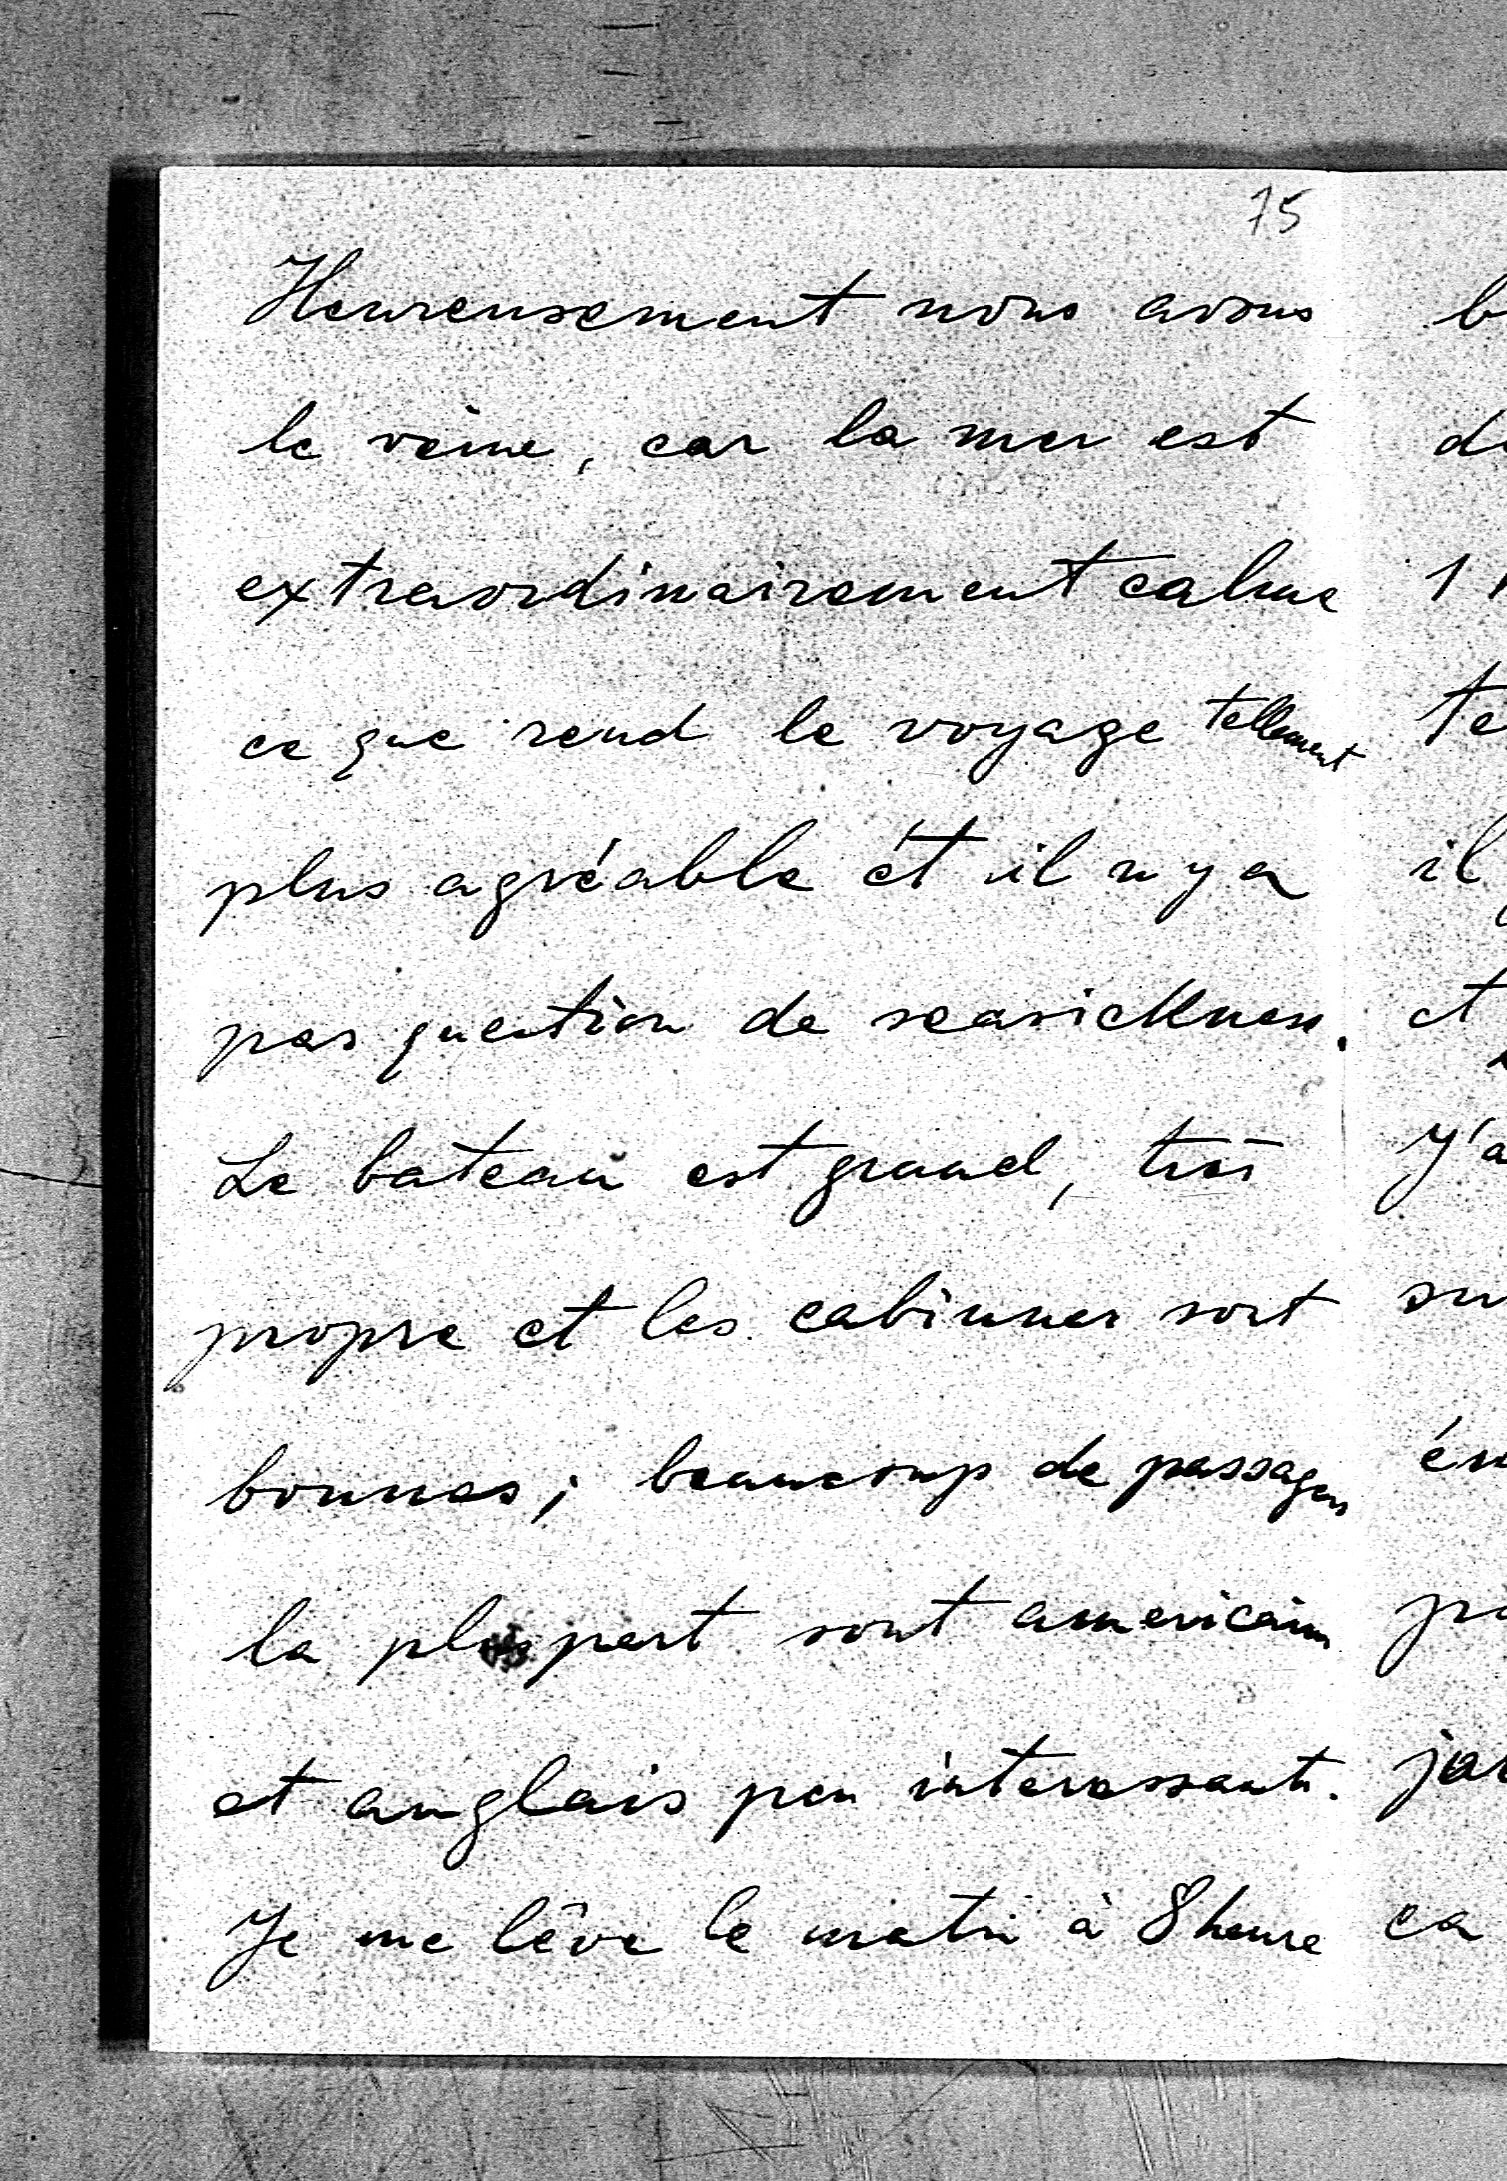 75
Heureusement nous avons
le veine, car la mer est
extraordinairement calme
ce que rend le voyage tellement
plus agréable ét il n y a
pas question de seasickness.
Le bateau est grand, très
propre et les cabinnes sont
bonnes; beaucoup de passagers
la pluspart sont americains
et anglais peu interessants.
Je me lêve le matin à 8 heure
b
de
11
te
il
et
J'a
su
én
pa
jar
ca